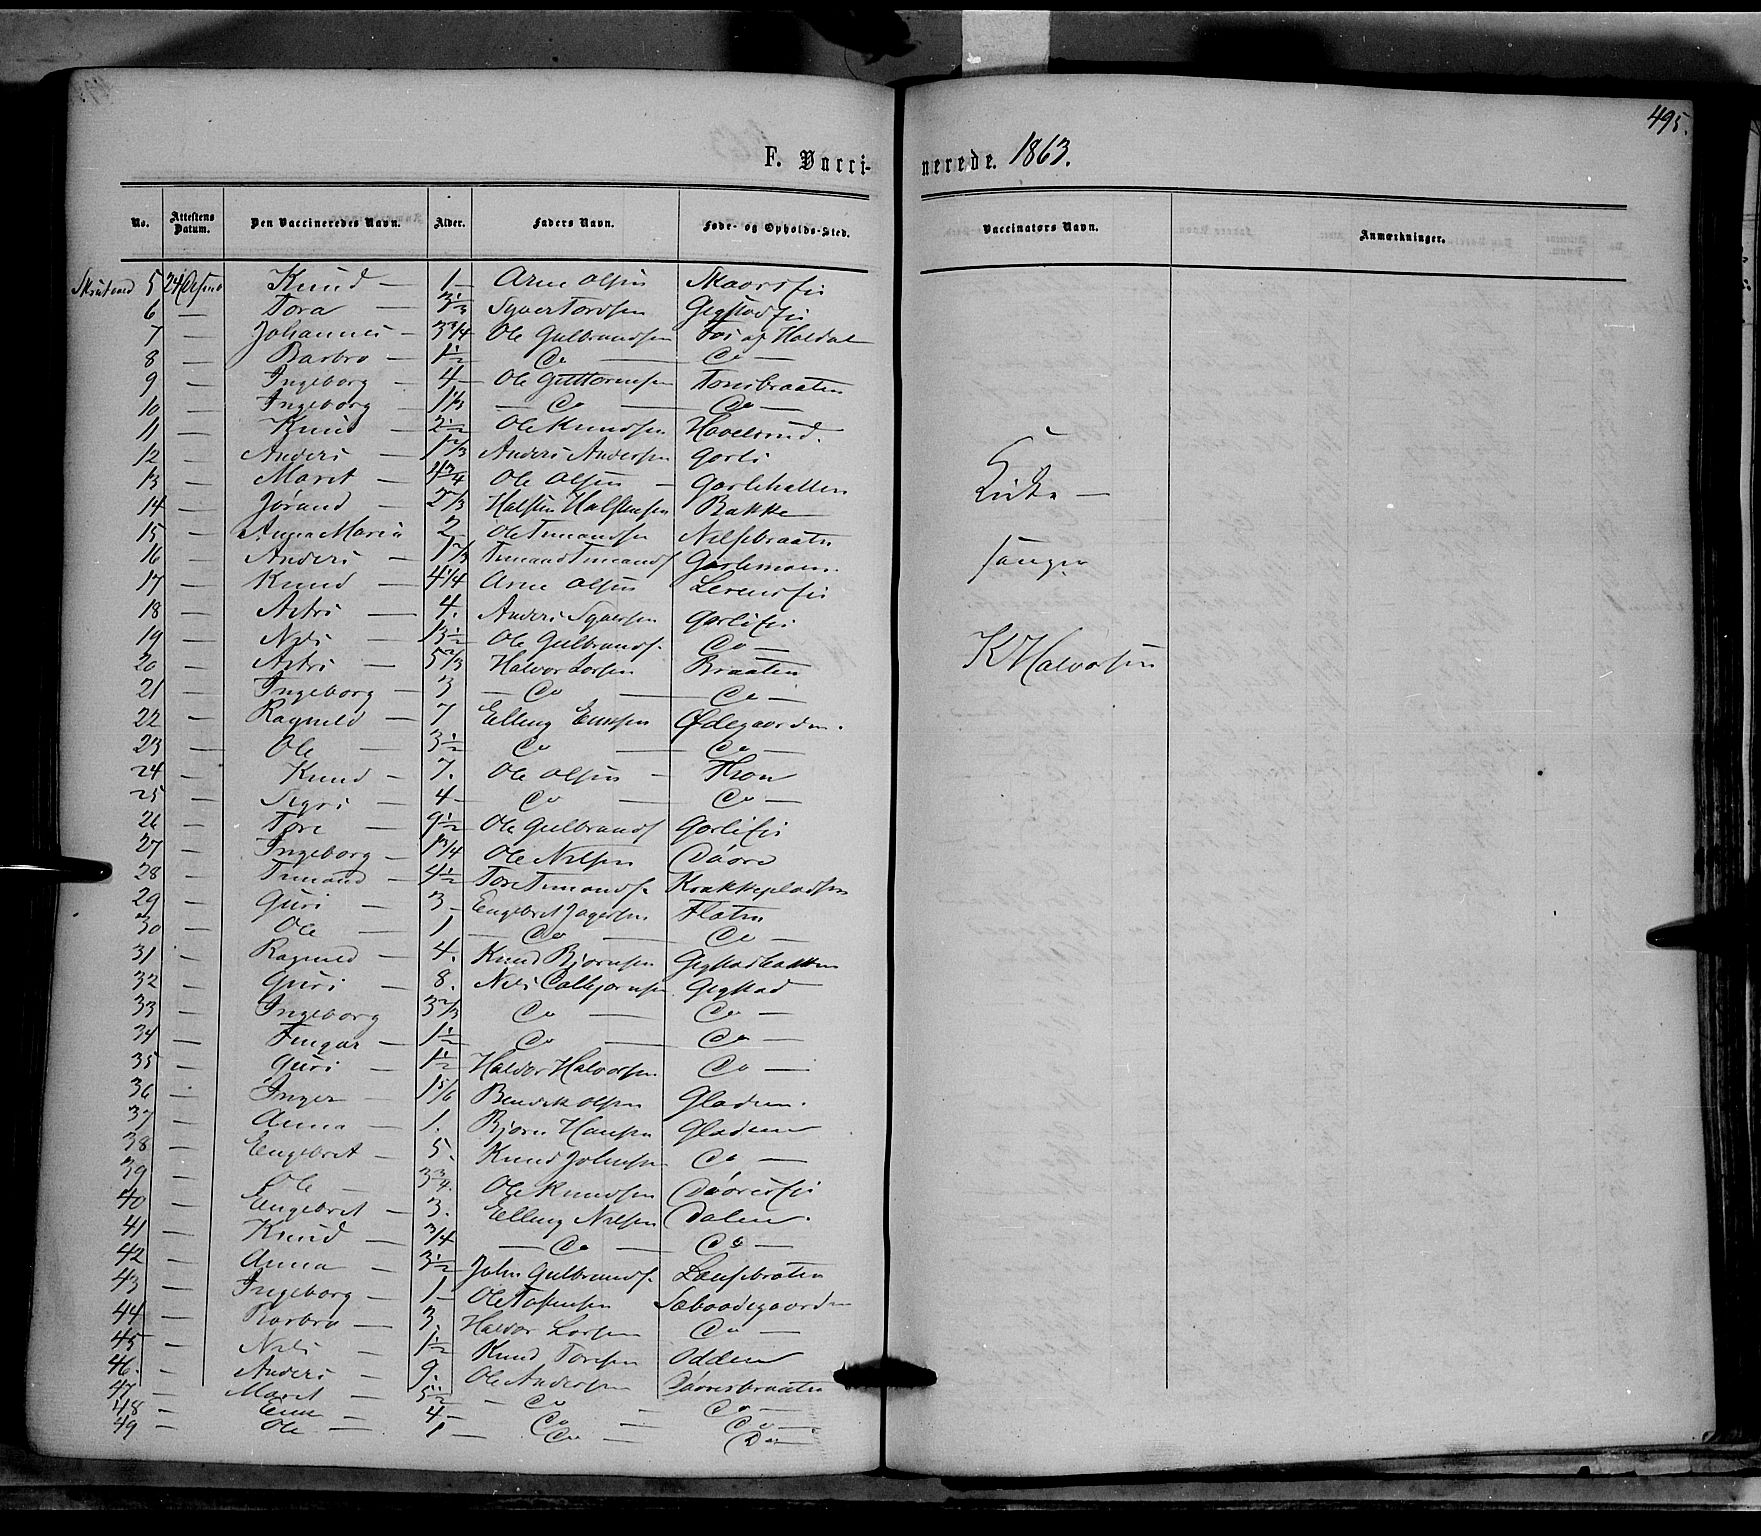 495.
F. Vaccinerede. 1863.
No. Attestens Datum. Den Vaccineredes Navn. Alder. Faders Navn. Føde- og Opholds-Sted. Vaccinatørs Navn. Anmærkninger.
5 24 Knud — 1 — Arne Olsen
6 — Tora — 3 1/3 Syver Tordsen
7 — Johannes — 3 3/4 Ole Gulbrandsen Fos og Haldal
8 — Barbro — 1 1/2 Do — Do —
9 — Ingeborg — 4 — Ole Guttormsen Tonsbraaten
10 — Ingeborg — 1 1/3 — Do — Do —
11 — Knud — 2 1/2 Ole Knudsen Hovelsrud.
12 — Anders — 1 2/3 Anders Andersen Garli
13 — Marit — Ole Olsen — Garlihatten
14 — Jørand — 2 1/3 Halsten Halstensen Bakke
15 — Anna Maria 2 — Ole Timandsen Nilsebraaten
16 — Anders — 1 2/3 Timand Timands. Garlimoen.
17 — Knud — 4 1/4 Arne Olsen
18 — Astri — 4. Anders Syversen Garliei
19 — Nils — Ole Gulbrands. Do —
20 — Astri — 5 2/3 Halvor Larsen Braaten
21 — Ingeborg — 3 — Do — Do —
22 — Ragnild — 7 Elling Ericksen Ødegaarden.
23 — Ole — 3 1/2 Do — Do —
24 — Knud — 7. Ole Olsen — Thon
25 — Sigri — 4 — Do — Do —
26 — Tore — 9 1/2 Ole Gulbrands. Garliei
27 — Ingeborg — 1 3/4 Ole Nilsen Døvre
28 — Timand — 4 1/2 Tore Timands. Krakkepladsen
29 — Guri — 3 — Engebret Jagersen Flaten
30 — Ole — 1 — Do — Do —
31 — Ragnild — 4. Knud Bjørnsen Gigstadbakken
32 — Guri — 8. Nils Colbjørnsen. Gigstad
33 — Ingeborg 3 2/3 Do — Do —
34 — Fingar — 1 1/2 Do — Do —
35 — Guri — 1 1/2 Halvor Halvorsen Do —
36 — Inger — 1 5/6 Bendik Olsen Gladeen.
37 — Anna — 1. Bjørn Hansen Gladeen
38 — Engebret — 5. Knud Johnsen Do —
39 — Ole — 3 3/4. Ole Knudsen
40 — Engebret — 3. Elling Nilsen Dalen.
41 — Knud — 3/4 — Do — Do —
42 — Anna — 3 1/2 John Gulbrands. Lansebraten
43 — Ingeborg — 1 — Ole Tostensen Sæbøødegaarden
44 — Barbro — 3 Halvor Larsen Do —
45 — Nils — 1 1/2 Knud Toresen Odden
46. — Anders — 9. Ole Andersen Døvresbraaten
47 — Marit — 5 1/2 — Do — Do —
48 — 4 — Do — Do —
49 — Ole — 1 — Do — Do —
Kirke —
sanger
K Halvorsen